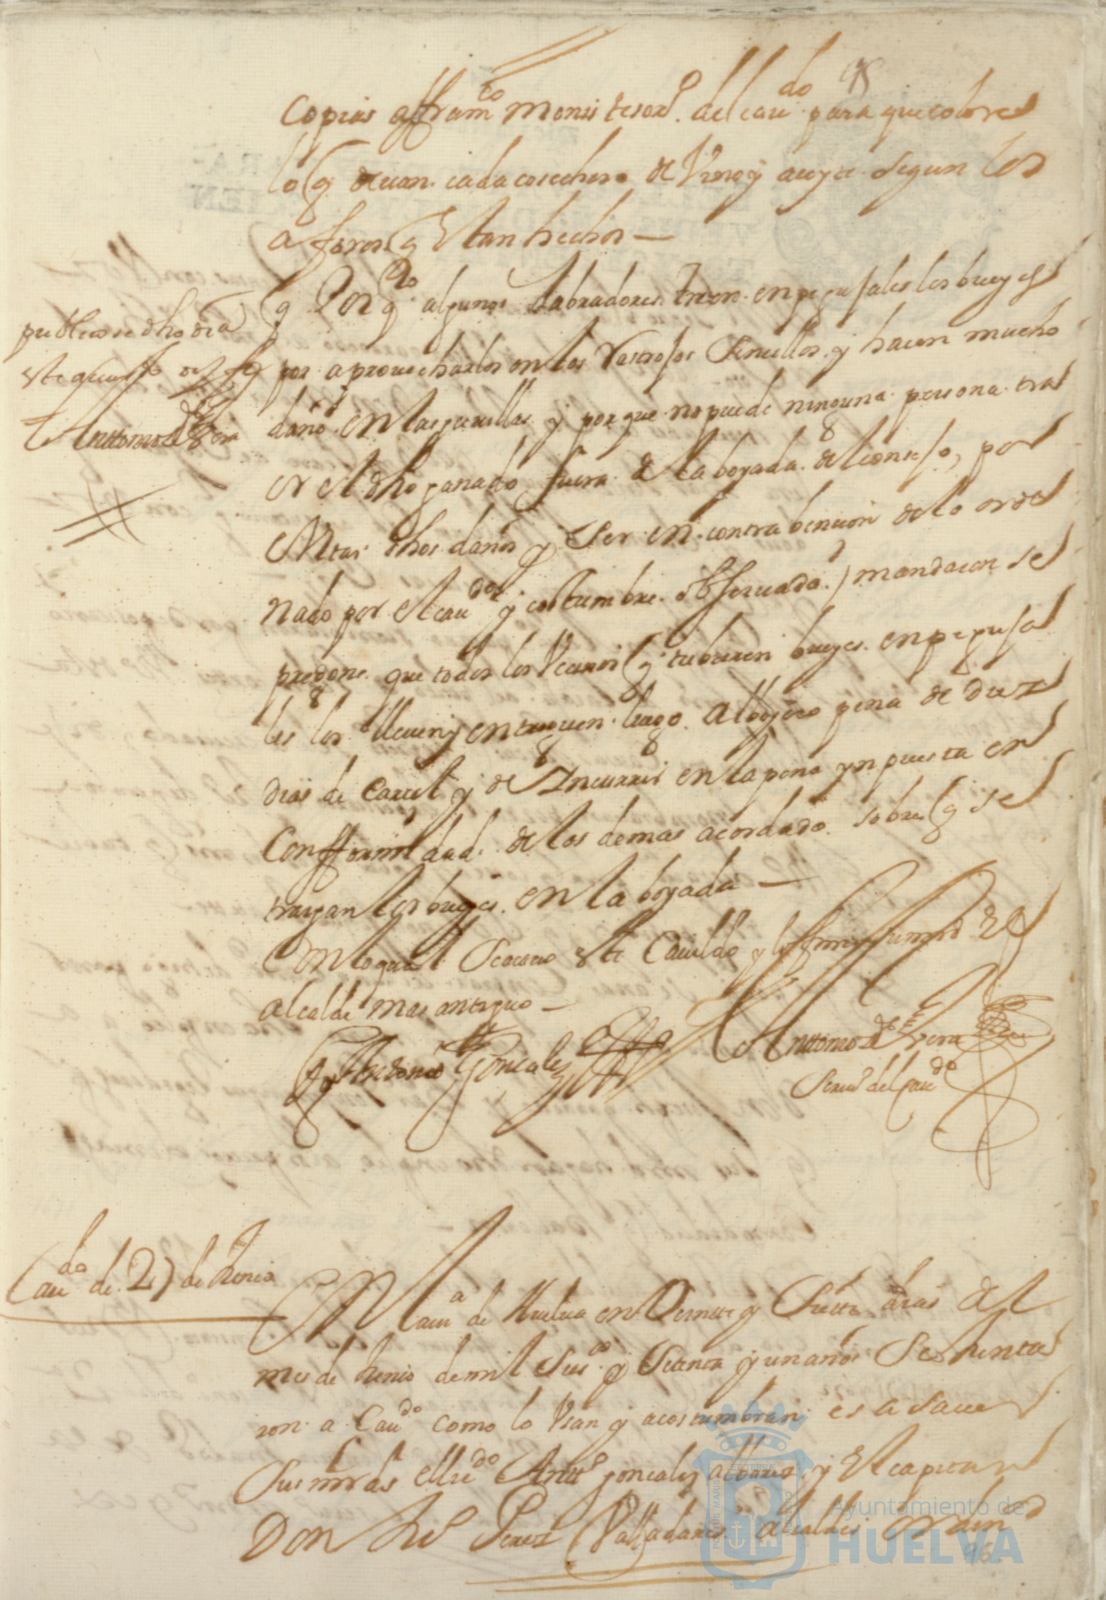 95
copias a fran.co Monis tesor.o del cau.do para que cobre
lo q deuan cada cosechero de Vino y aceyte segun los
aforos q estan hechos —
publicose dho dia
Anttonio de Vera
q Por q.to algunos labradores traen en pegujales los bueyes
por aprouecharlos en los Rastrojos senсillos y hacen mucho
daño en las y porque no puede ninguna persona tra
er el dho ganado fuera de la boyada de consejo, por
euitar dhos daños y ser en contrabencion de lo orde
nado por el cau.do y costumbre obseruada / mandaron se
pregone que todos los Vecinos q tubieren bueyes en peguja
les los lleuen y entreguen luego al boyero pena de diez
dias de carcel y de Yncurrir en la pena ynpuesta en
Confformidad de los demas acordado sobre q se
traygan los bueyes en la boyada —
Con lo qual se cerro este Cauildo y lo firmo su md el
alcalde mas antiguo —
Antonio Gonzales
Anttonio de Vera
Scriu.o del Cau.do
Cau.do de 27 de Junio
En la Villa de Huelua en Veinte y Siete dias del
mes de Junio de mil seis.os y setenta y un años se Junta
ron a Cau.do como lo Usan y acostumbran es a sauer
Sus mrds el licdo Antt.o gonzalez albarez y el capitan
Don Ju.o Perez Valladares alcaldes ordin.os
96
Ayuntamiento de
HUELVA